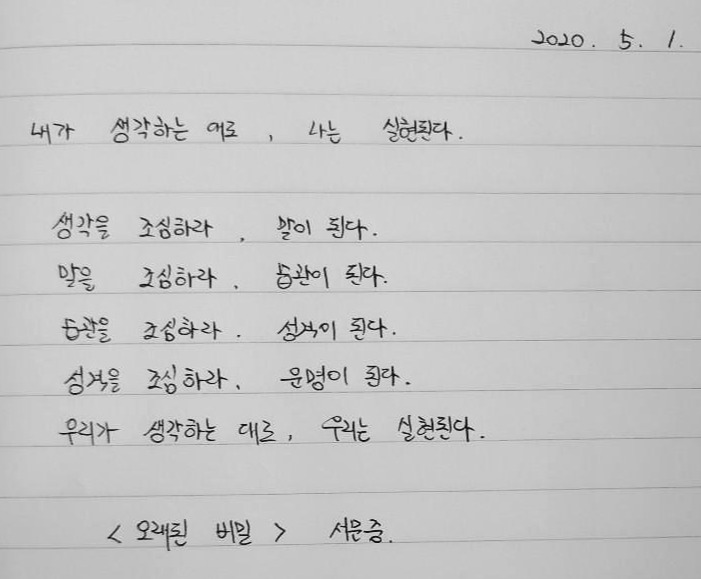 2020. 5. 1.
내가 생각하는 대로, 나는 실현된다.
생각을 조심하라, 말이 된다.
말을 조심하라. 습관이 된다.
습관을 조심하라. 성격이 된다.
성격을 조심하라. 운명이 된다.
우리가 생각하는 대로, 우리는 실현된다.
< 오래된 비밀 > 서문중.